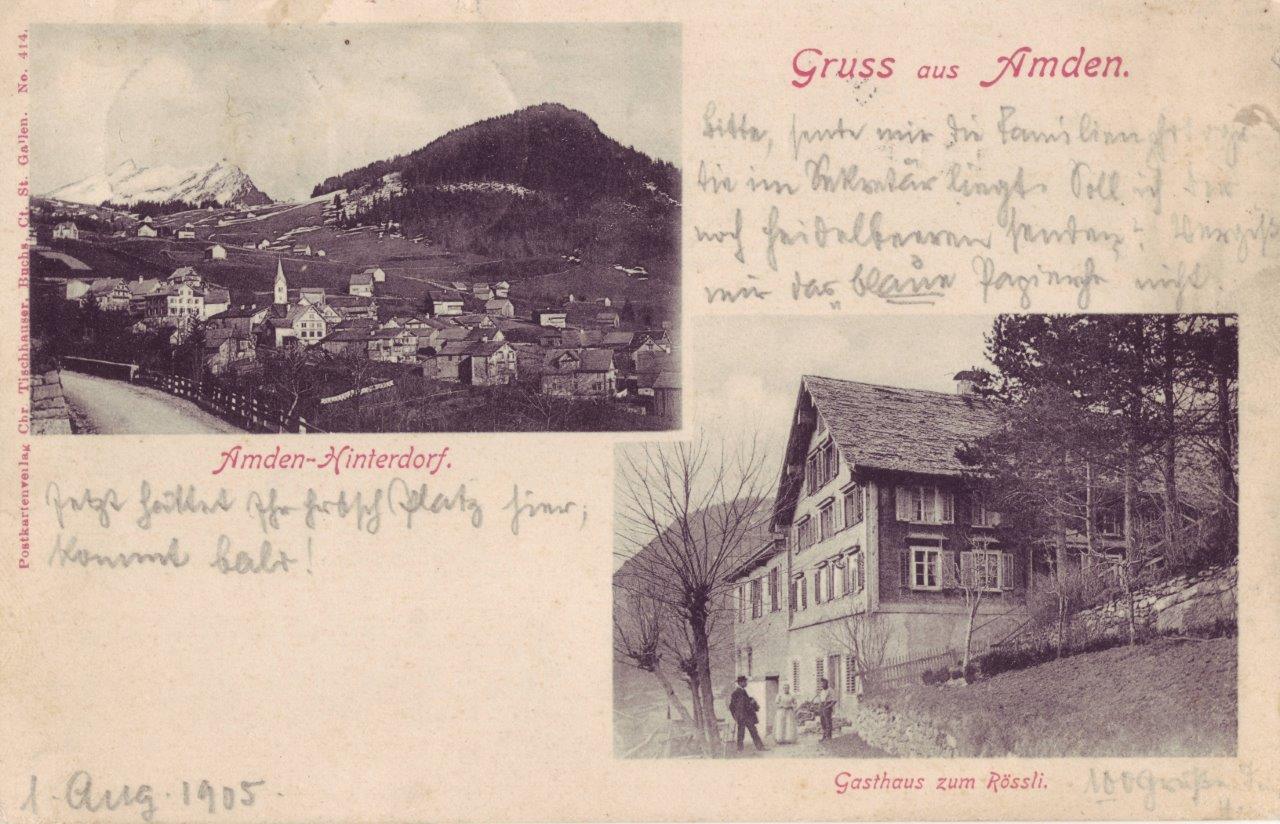 Gruss aus Amden.
Bitte, sende mir die Familienphotogra
die im Sekretär liegt. Soll ich
noch Heidelbeeren senden? Vergiß
mir das blaue nicht.
Amden-Hinterdorf.
Jetzt hättet Ihr Platz hier,
kommt bald!
1. Aug. 1905.
Gasthaus zum Rössli.
100 Grüße
Postkartenverlag Chr. Tischhauser, Buchs, Ct. St. Gallen. No. 414.